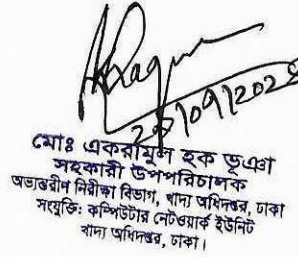 ২০/০৭/২০২৫
মোঃ একরামুল হক ভূঞা
সহকারী উপপরিচালক
অভ্যন্তরীণ নিরীক্ষা বিভাগ, খাদ্য অধিদপ্তর, ঢাকা
সংযুক্তি: কম্পিউটার নেটওয়ার্ক ইউনিট
খাদ্য অধিদপ্তর, ঢাকা।